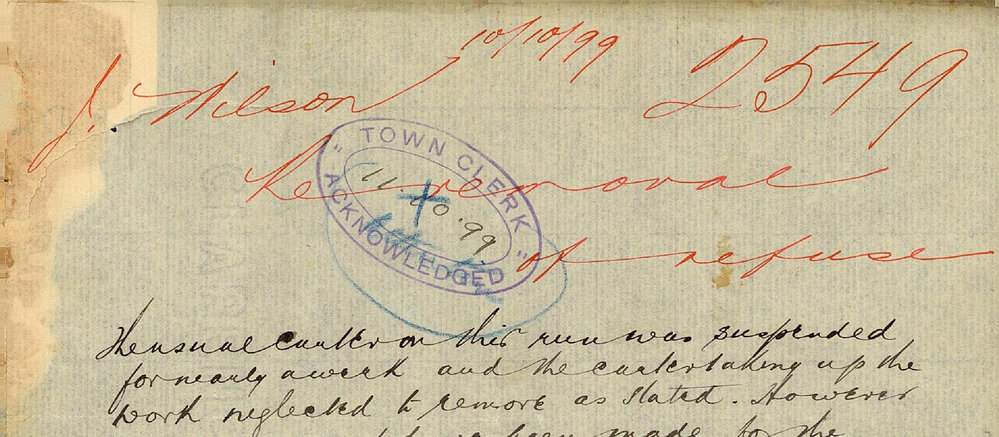 10/10/99
J. Wilson 2549
Re removal
of refuse
"TOWN CLERK"
11.10.99
ACKNOWLEDGED
The usual carter on this run was suspended
for nearly a week and the carter taking up the
work neglected to remove as stated. However
been made for the